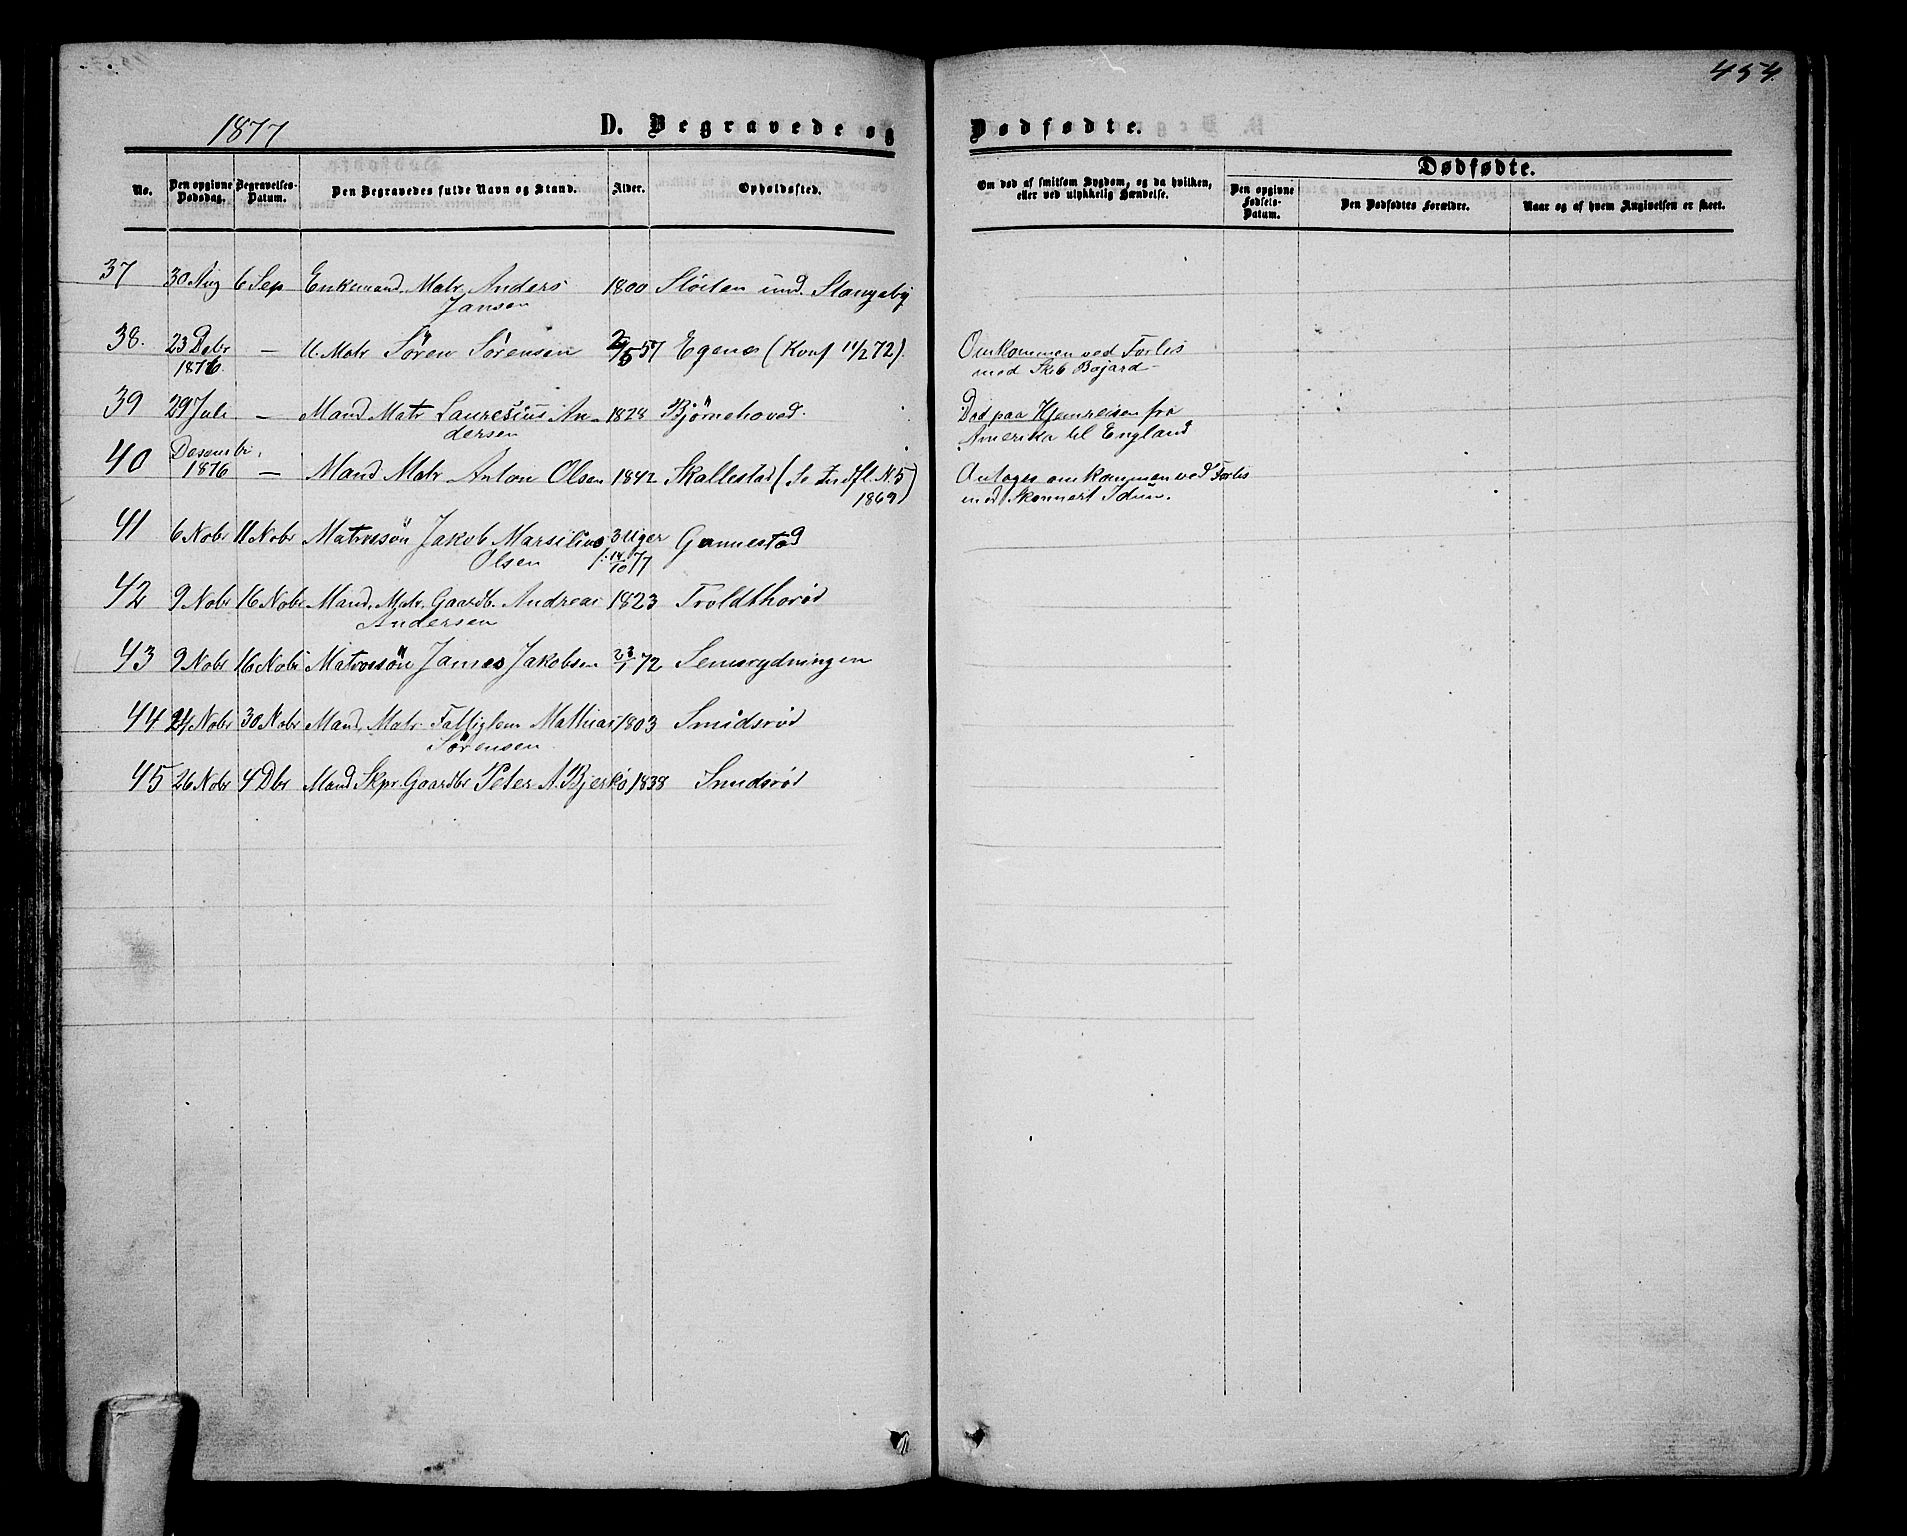 454.
1877 D. Begravede og Dødfødte.
Dødfødte.
No. Den opgivne Dødsdag. Begravelses-Datum. Den Begravedes fulde Navn og Stand. Alder. Opholdssted. Om død af smitsom Sygdom, og da hvilken, eller ved ulykkelig Hændelse. Den opgivne Fødsels-Datum. Den Dødfødtes Forældre. Naar og af hvem Angivelsen er skeet.
37 30 Aug 6 Sep Enkemand. Matr. Anders 1800 Sløiten und. Stangeby
Jansen
38. 23 Dcbr — U. Matr Sören Sörensen 2/5 57 Egenes (Konf 11/2 72). Omkommen ved Forlis
1876. med Skib Bojard –
39 29 Juli — Mand Matr Lauresius An- 1828 Bjørnehoved. Død paa Hjemreisen fra
dersen Amerika til England
40 Desembr.
1876 — Mand Matr Anton Olsen 1842 Skallestad (Se Indfl. N. 5 Antages omkommen ved Forlis
1869) med Skonnert Idun.
41 6 Nobr 11 Nobr Matrossön Jakob Marsilius 3 Uger Gunnestad
Olsen f. 14/10 77
42 9 Nobr 16 Nobr Mand, Matr. Gaardb. Andreas 1823 Troldthorød
Andersen
43 9 Nobr 16 Nobr Matrossön James Jakobsen 23/1 72 Semsrydningen
44 24 Nobr 30 Nobr Mand, Matr. Fattiglem Mathias 1803 Smidsrød
Sörensen
45 26 Nobr 4 Dbr Mand Skpr. Gaardbr Peter A. Bjerkö 1838 Smidsrød